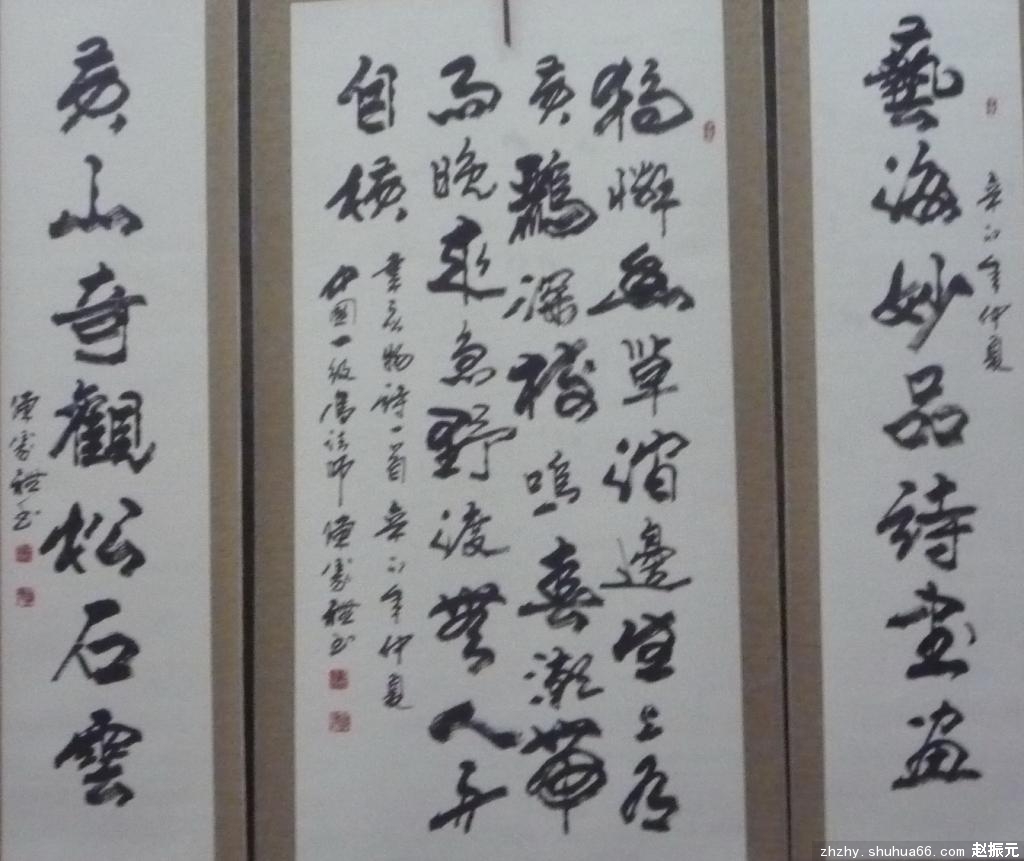 藝海妙品詩書画
辛卯年仲夏
獨憐幽草澗邊生上有
黄鸝深樹鳴春潮帶
雨晚來急野渡無人舟
自橫
韋应物詩一首 辛卯年仲夏
中國一級書法師
黄山奇觀松石雲
zhzhy.shuhua66.com 赵振元